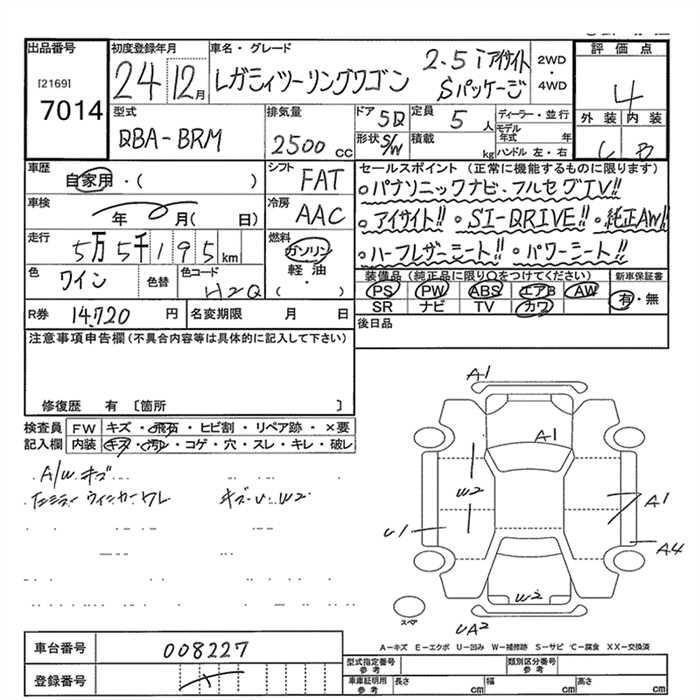 出品番号 初度登録年月 車名・グレード 評価点
[2169] 7014 24 12月 レガシィツーリングワゴン 2.5iアイサイト Sパッケージ 2WD・4WD 4
型式 排気量 ドア 定員 ディーラー・並行 外装 内装
QBA-BRM 2500cc 5D 5人 モデル年式 年 B
形状 S/W 積載 kg ハンドル 左・右
車歴 シフト セールスポイント (正常に機能するものに限ります)
自家用・( ) FAT 。パナソニックナビ・フルセグTV!!
車検 冷房
年 月( 日) AAC 。アイサイト!! 。SI-DRIVE!! 。純正AW!!
走行 燃料
5万5千195km ガソリン 。ハーフレザーシート!! 。パワーシート!!
色 色替 色コード 軽油
ワイン H2Q ・( ) 装備品 (純正品に限り○をつけてください) 新車保証書
PS PW ABS エアB AW 有・無
SR ナビ TV カワ
R券 14,720円 名変期限 月 日 後日品
注意事項申告欄(不具合内容等は具体的に記入して下さい)
修復歴 有 〔箇所 〕
検査員 FW キズ・飛石・ヒビ割・リペア跡・×要
記入欄 内装 キズ・汚レ・コゲ・穴・スレ・キレ・破レ
A/W キズ
ウィンカーワレ キズ・U・W2
A1
A1
W2
A1
U1
A4
W2
スペア
UA2
A-キズ E-エクボ U-凹み W-補修跡 S-サビ C-腐食 XX-交換済
車台番号 008227
登録番号
型式指定番号 参考 類別区分番号 参考
車庫証明用 参考 長さ cm 幅 cm 高さ cm